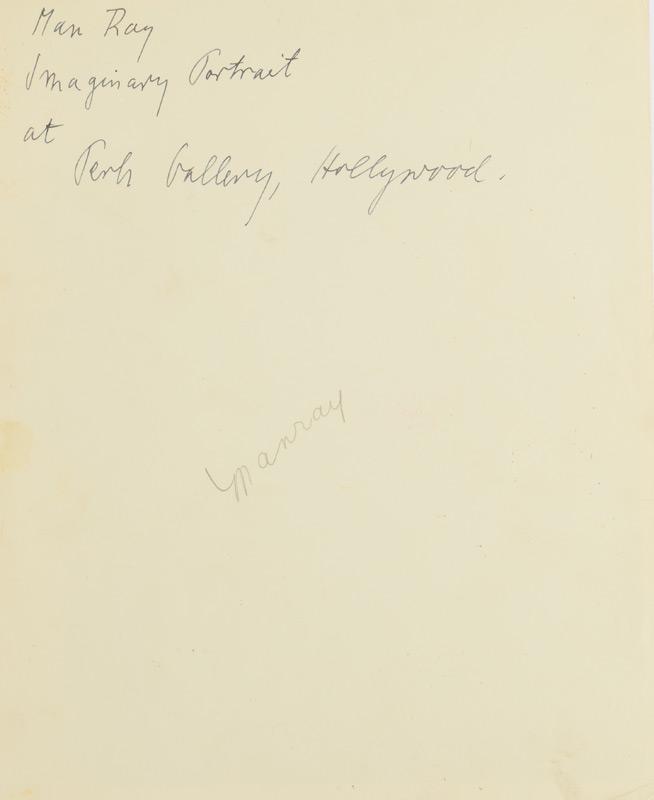 Man Ray
Imaginary Portrait
at
Perls Gallery, Hollywood.
Manray